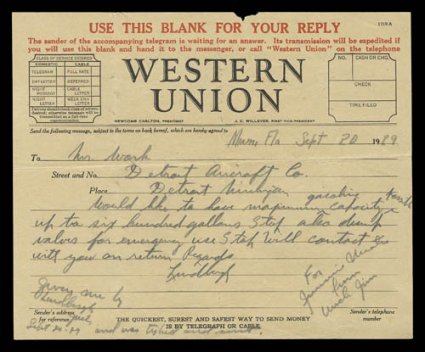 USE THIS BLANK FOR YOUR REPLY
The sender of the accompanying telegram is waiting for an answer. Its transmission will be expedited if
you will use this blank and hand it to the messenger, or call "Western Union" on the telephone
CLASS OF SERVICE DESIRED
DOMESTIC CABLE
TELEGRAM FULL RATE
DAY LETTER DEFERRED
NIGHT MESSAGE CABLE LETTER
NIGHT LETTER WEEK END LETTER
WESTERN
UNION
NO. CASH OR CHG.
CHECK
TIME FILED
NEWCOMB CARLTON, PRESIDENT J. C. WILLEVER, FIRST VICE-PRESIDENT
Send the following message, subject to the terms on back hereof, which are hereby agreed to
Miami, Fla Sept 20 1929
To Mr. Work
Street and No. Detroit Aircraft Co.
Place Detroit Michigan
Would like to have maximum gasoline tank capacity
up to six hundred gallons Stop also dump
valves for emergency use Stop Will contact
with you on return Regards
Lindbergh
Given me by
Lindbergh
Sept 20-29 and was typed and sent.
For
Jimmie
from
Uncle Jim
Sender's address
for reference
THE QUICKEST, SUREST AND SAFEST WAY TO SEND MONEY
IS BY TELEGRAPH OR CABLE
Sender's telephone
number